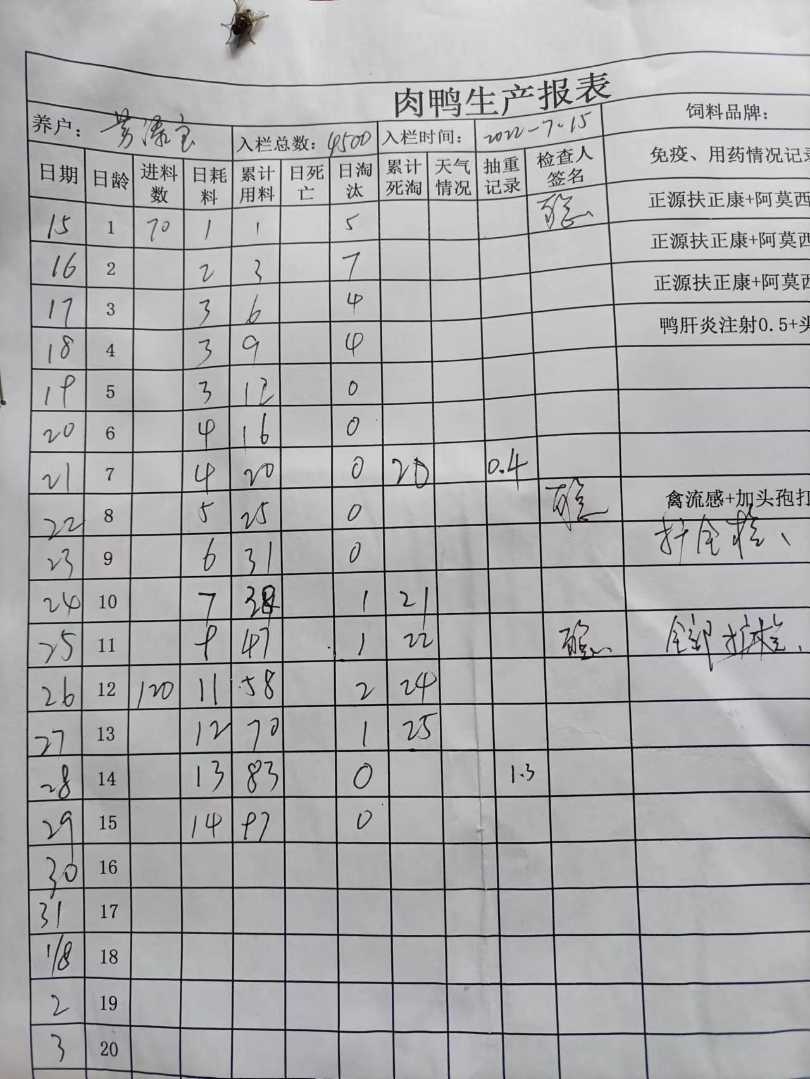 肉鸭生产报表
养户: 入栏总数: 4500 入栏时间: 2022-7.15 饲料品牌:
日期 日龄 进料数 日耗料 累计用料 日死亡 日淘汰 累计死淘 天气情况 抽重记录 检查人签名 免疫、用药情况记录
15 1 70 1 1 5 正源扶正康+阿莫西
16 2 2 3 7 正源扶正康+阿莫西
17 3 3 6 4 正源扶正康+阿莫西
18 4 3 9 4 鸭肝炎注射0.5+头
19 5 3 12 0
20 6 4 16 0
21 7 4 20 0 20 0.4
22 8 5 25 0 禽流感+加头孢打
23 9 6 31 0
24 10 7 38 1 21
25 11 9 47 1 22 全部
26 12 120 11 58 2 24
27 13 12 70 1 25
28 14 13 83 0 1.3
29 15 14 97 0
30 16
31 17
1/8 18
2 19
3 20